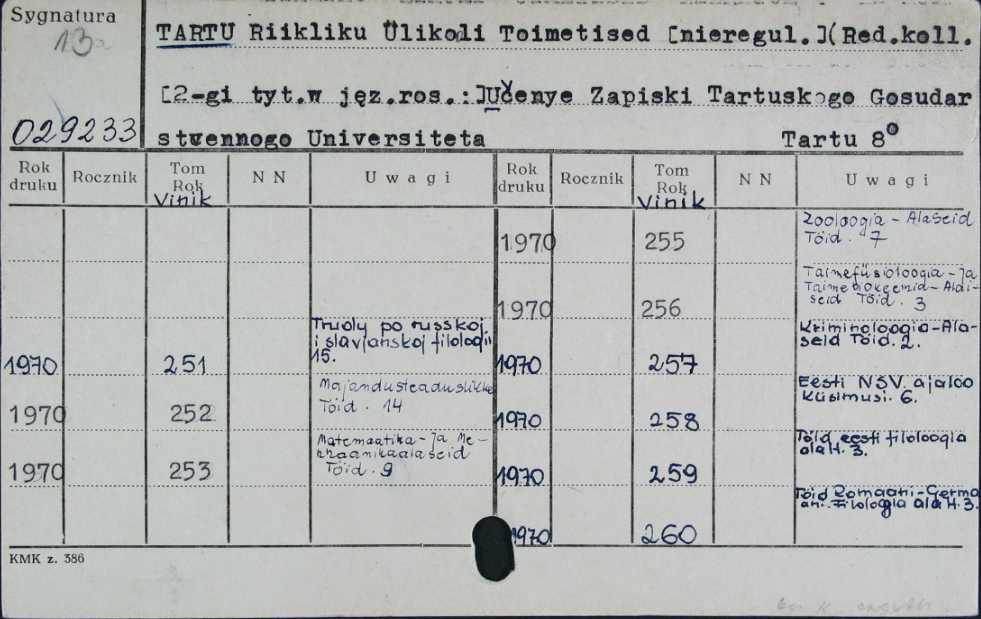 Sygnatura
13a
TARTU Riikliku Ülikooli Toimetised [nieregul.](Red.koll.
[2-gi tyt.w jęz.ros.:]Učenye Zapiski Tartuskogo Gosudar
029233 stvennogo Universiteta Tartu 8°
Rok druku Rocznik Tom Rok NN Uwagi Rok druku Rocznik Tom Rok NN Uwagi
Vihik Vihik
1970 255 Zooloogia-Alaseid
Töid. 7
1970 256 Taimefüsioloogia-Ja
Taimebiokeemia-Alai-
seid Töid. 3
1970 251 Trudy po russkoj
i slavjanskoj filologii
15.
1970 257 Kriminoloogia-Ala-
seid Töid. 2.
1970 252 Majandusteaduslikke
Töid. 14
1970 258 Eesti NSV. ajaloo
Küsimusi. 6.
1970 253 Matematika-Ja Me-
haanikaalaseid
Töid. 9
1970 259 Töid eesti filoloogia
ala H. 3.
1970 260 Töid Romaani-Germa
ani-Filoloogia ala H. 3.
KMK z. 386